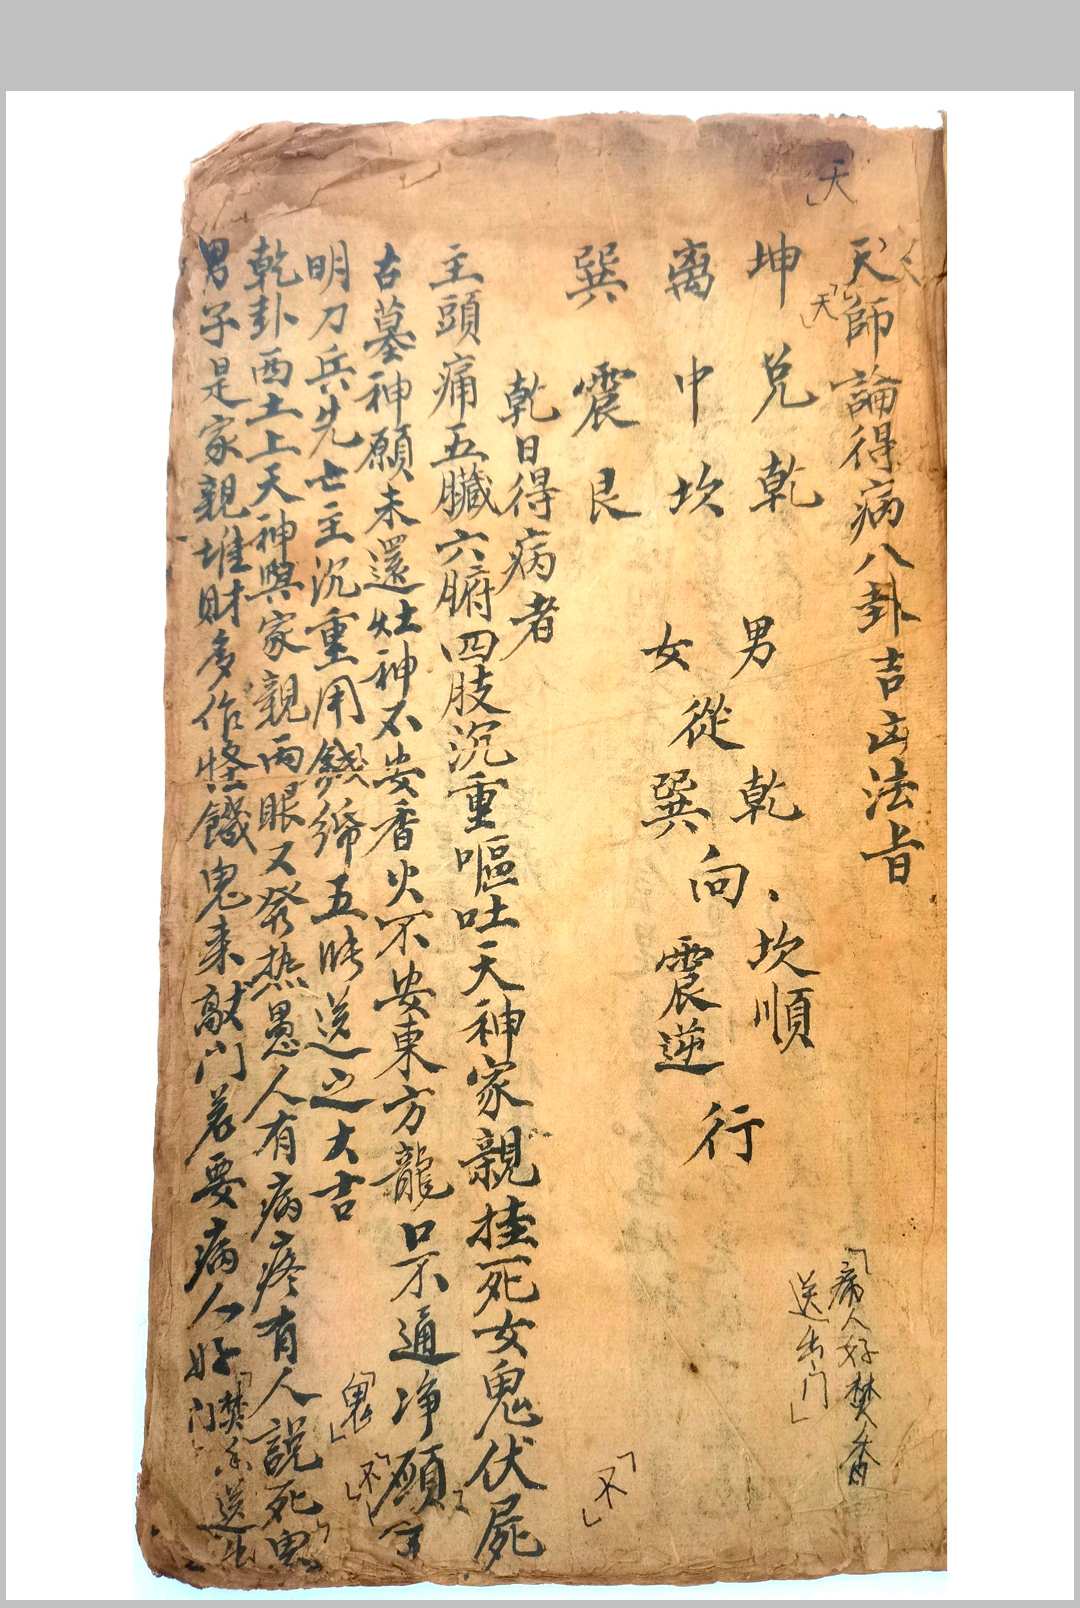 天
天師論得病八卦吉凶法旨
天
坤兌乾
离中坎
巽震艮
男乾、坎順
從向行
女巽震逆
「病人好焚香
送出门」
乾日得病者
主頭痛五臟六腑四肢沉重嘔吐天神家親挂死女鬼伏屍
「不」
古墓神願未還灶神不安香火不安東方龍口不通净願
「不」
明刀兵先亡主沉重用錢五送之大吉
「鬼」
乾卦西土上天神與家親两眼又發热愚人有病疼有人説死鬼
男子是家親堆財多作怪餓鬼来敲门若要病人好
「焚香送出
门」